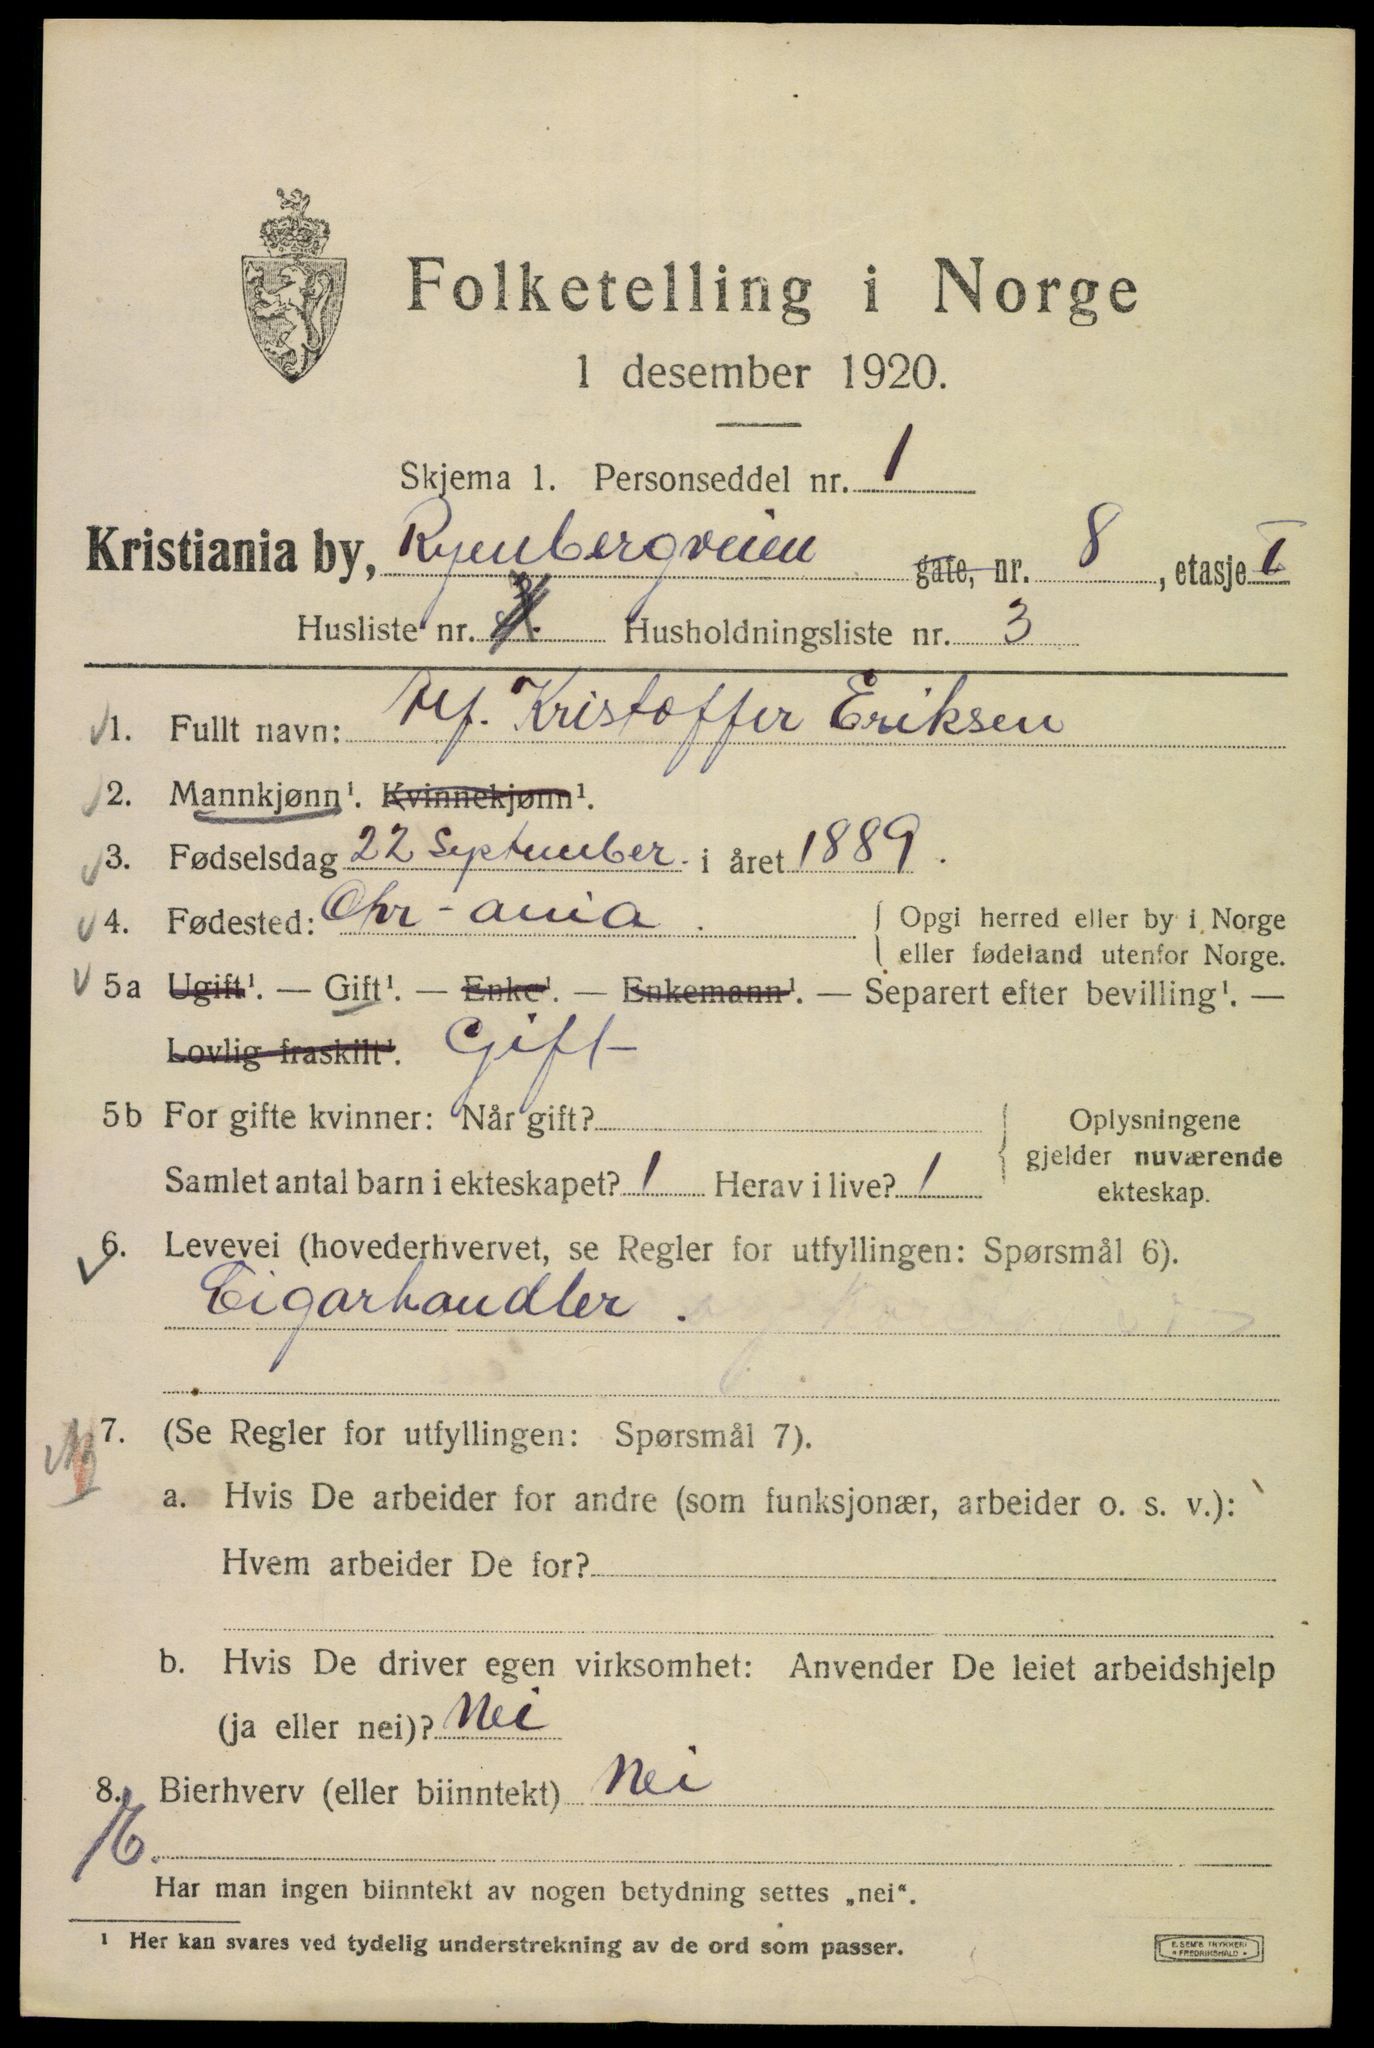 Folketelling i Norge
1 desember 1920.
Skjema 1. Personseddel nr. 1
Kristiania by, Ryenbergveien gate, nr. 8, etasje I
Husliste nr. Husholdningsliste nr. 3
1. Fullt navn: Alf. Kristoffer Eriksen
2. Mannkjønn¹. Kvinnekjønn¹.
3. Fødselsdag 22 September. i året 1889.
4. Fødested: Chr-ania. { Opgi herred eller by i Norge
eller fødeland utenfor Norge.
5a Ugift¹. — Gift¹. — Enke¹. — Enkemann¹. — Separert efter bevilling¹. —
Lovlig fraskilt¹. Gift
5b For gifte kvinner: Når gift?
Samlet antal barn i ekteskapet? 1 Herav i live? 1
Oplysningene
gjelder nuværende
ekteskap.
6. Levevei (hovederhvervet, se Regler for utfyllingen: Spørsmål 6).
Cigarhandler.
7. (Se Regler for utfyllingen: Spørsmål 7).
a. Hvis De arbeider for andre (som funksjonær, arbeider o. s. v.):
Hvem arbeider De for?
b. Hvis De driver egen virksomhet: Anvender De leiet arbeidshjelp
(ja eller nei)? Nei
8. Bierhverv (eller biinntekt) Nei
Har man ingen biinntekt av nogen betydning settes „nei“.
¹ Her kan svares ved tydelig understrekning av de ord som passer.
E. SEM'S TRYKKERI
FREDRIKSHALD